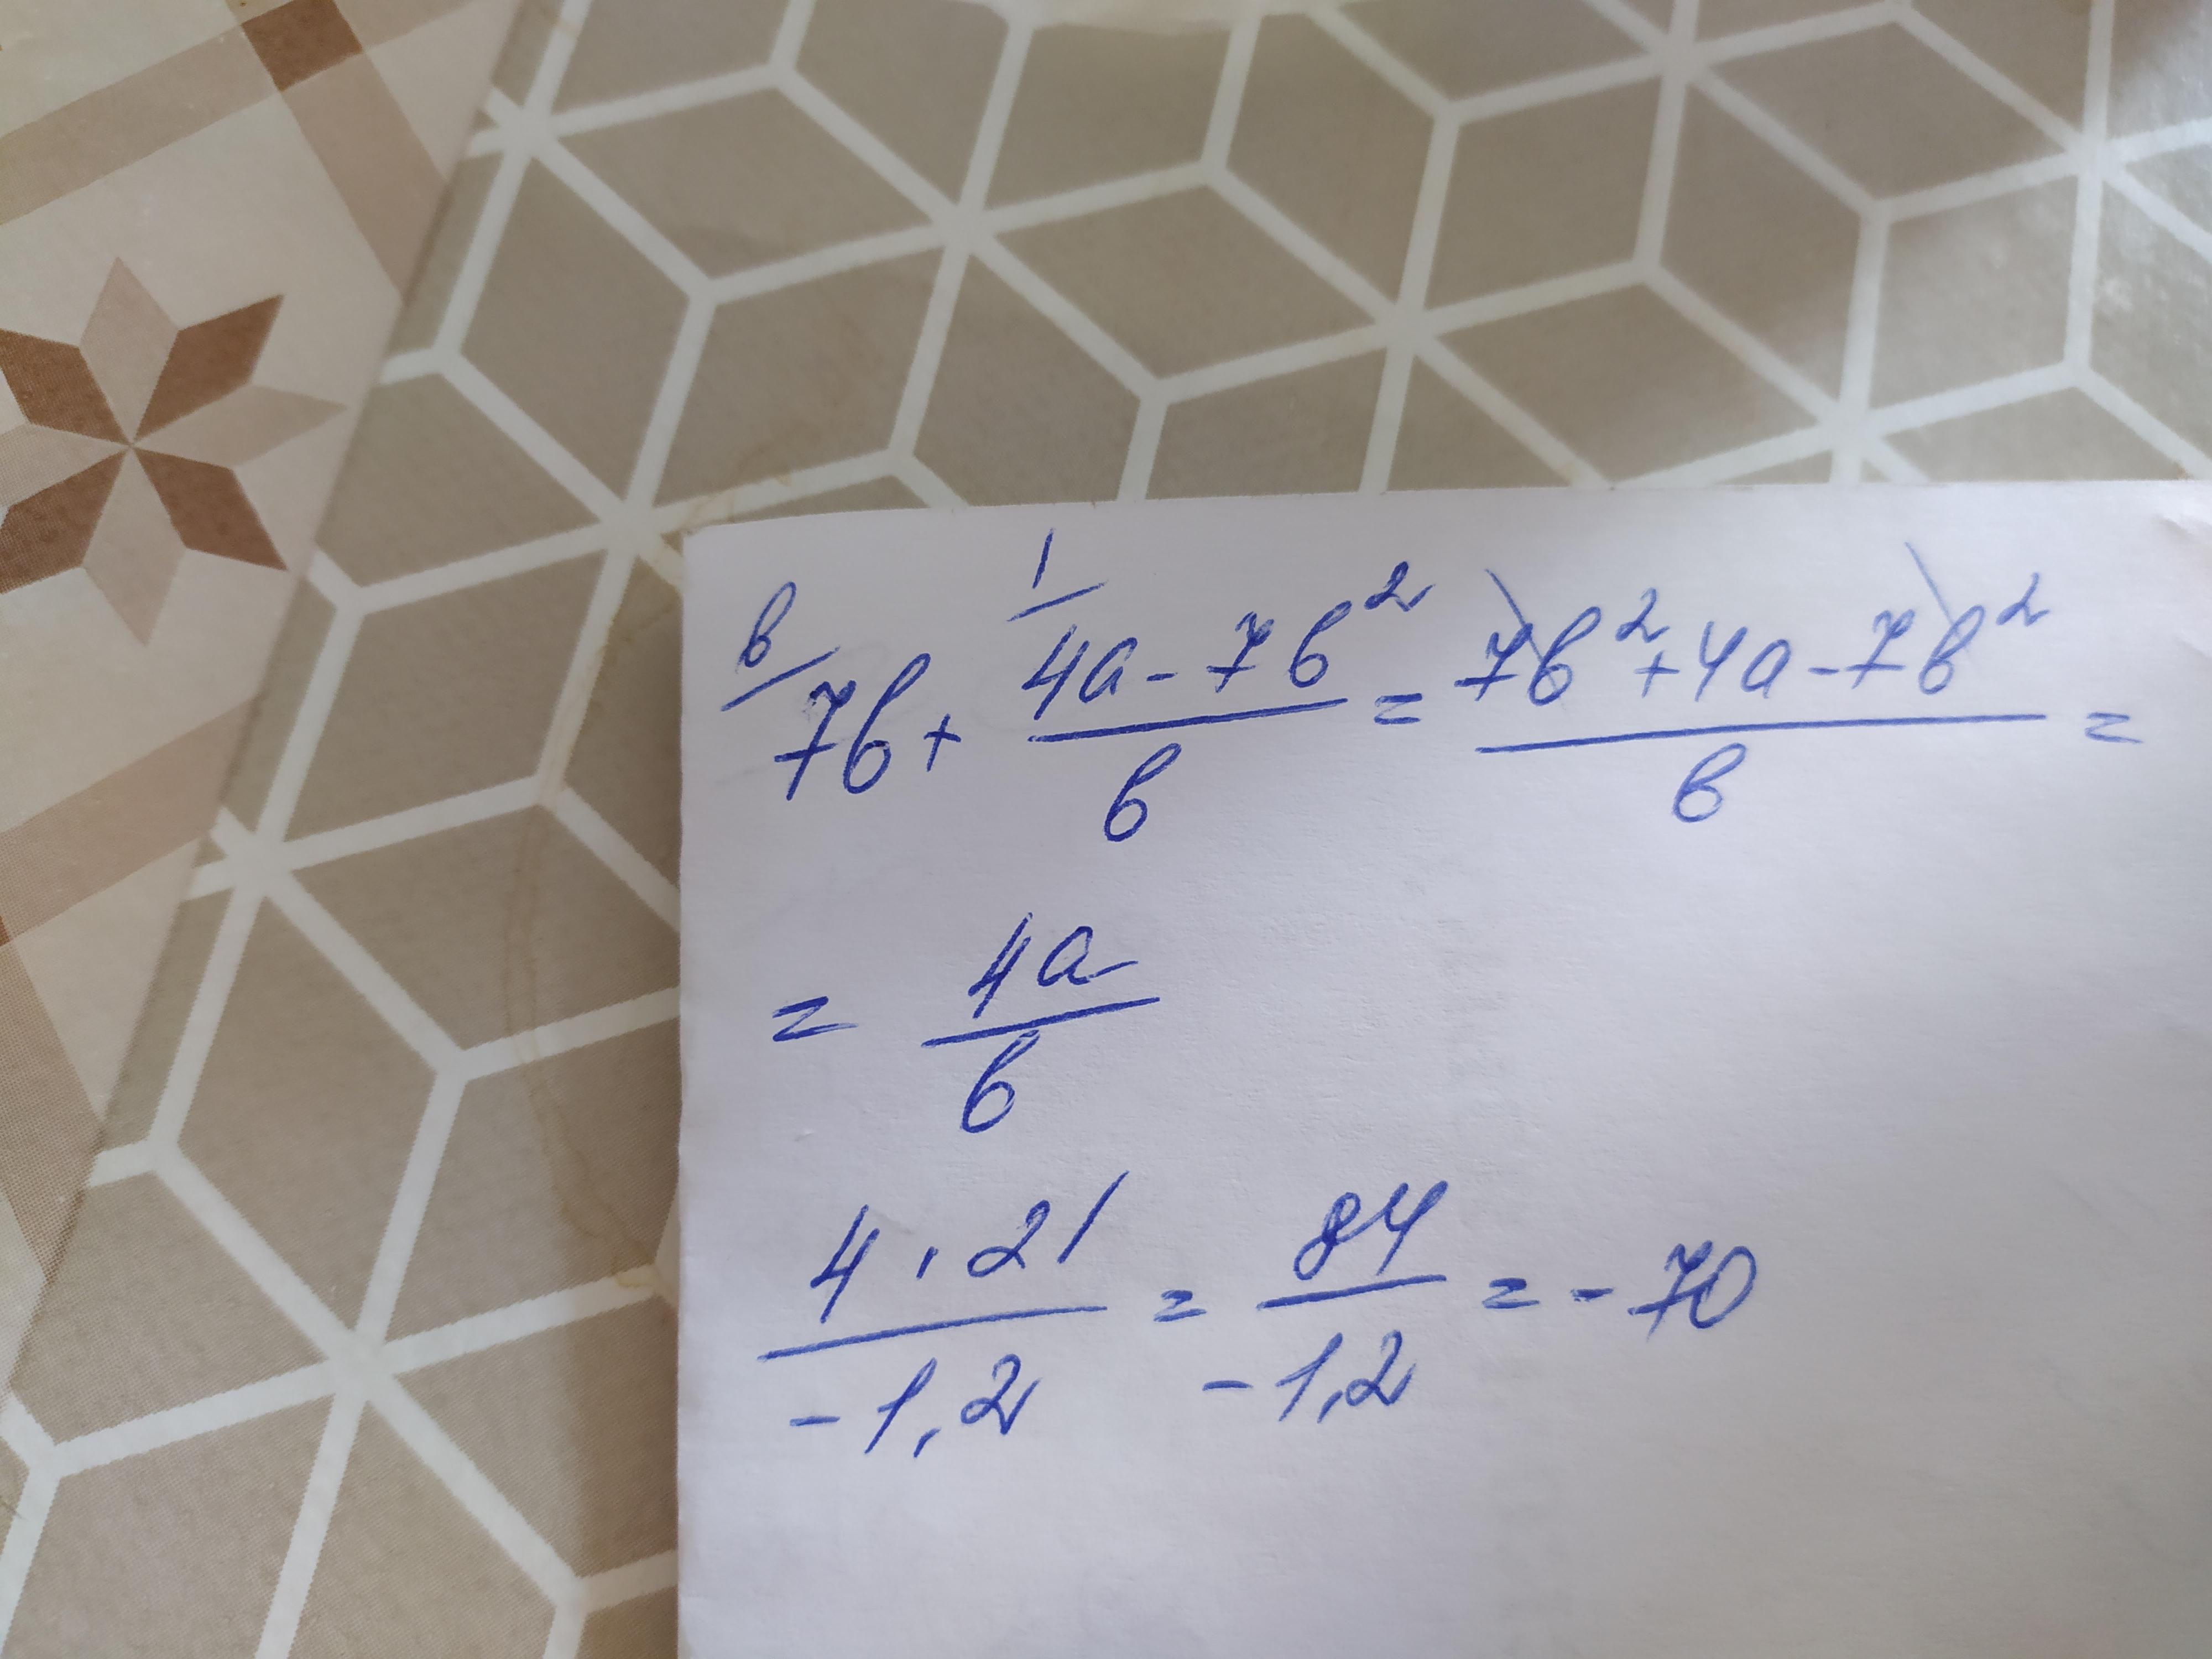 в/ 7в + 1/ (4a - 7в²)/в = (7в² + 4a - 7в²)/в =
= 4a/в
4 · 21/-1,2 = 84/-1,2 = - 70